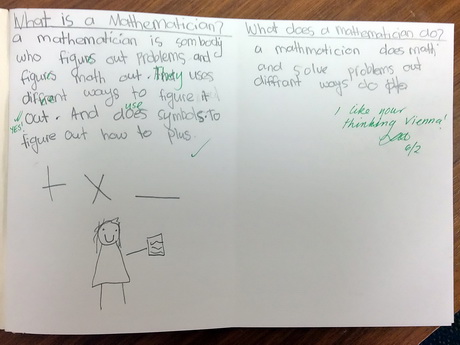 What is a Mathematician?
a mathematician is sombody
who figurs out problems and
figurs math out. They uses
diffrent ways to figure it
out. And does use symbols. To
YES!
figure out how to plus.
+ x —
What does a mathematician do?
a mathmatician does math
and solve problems out
diffrant ways do
I like your
thinking Vienna!
6/2